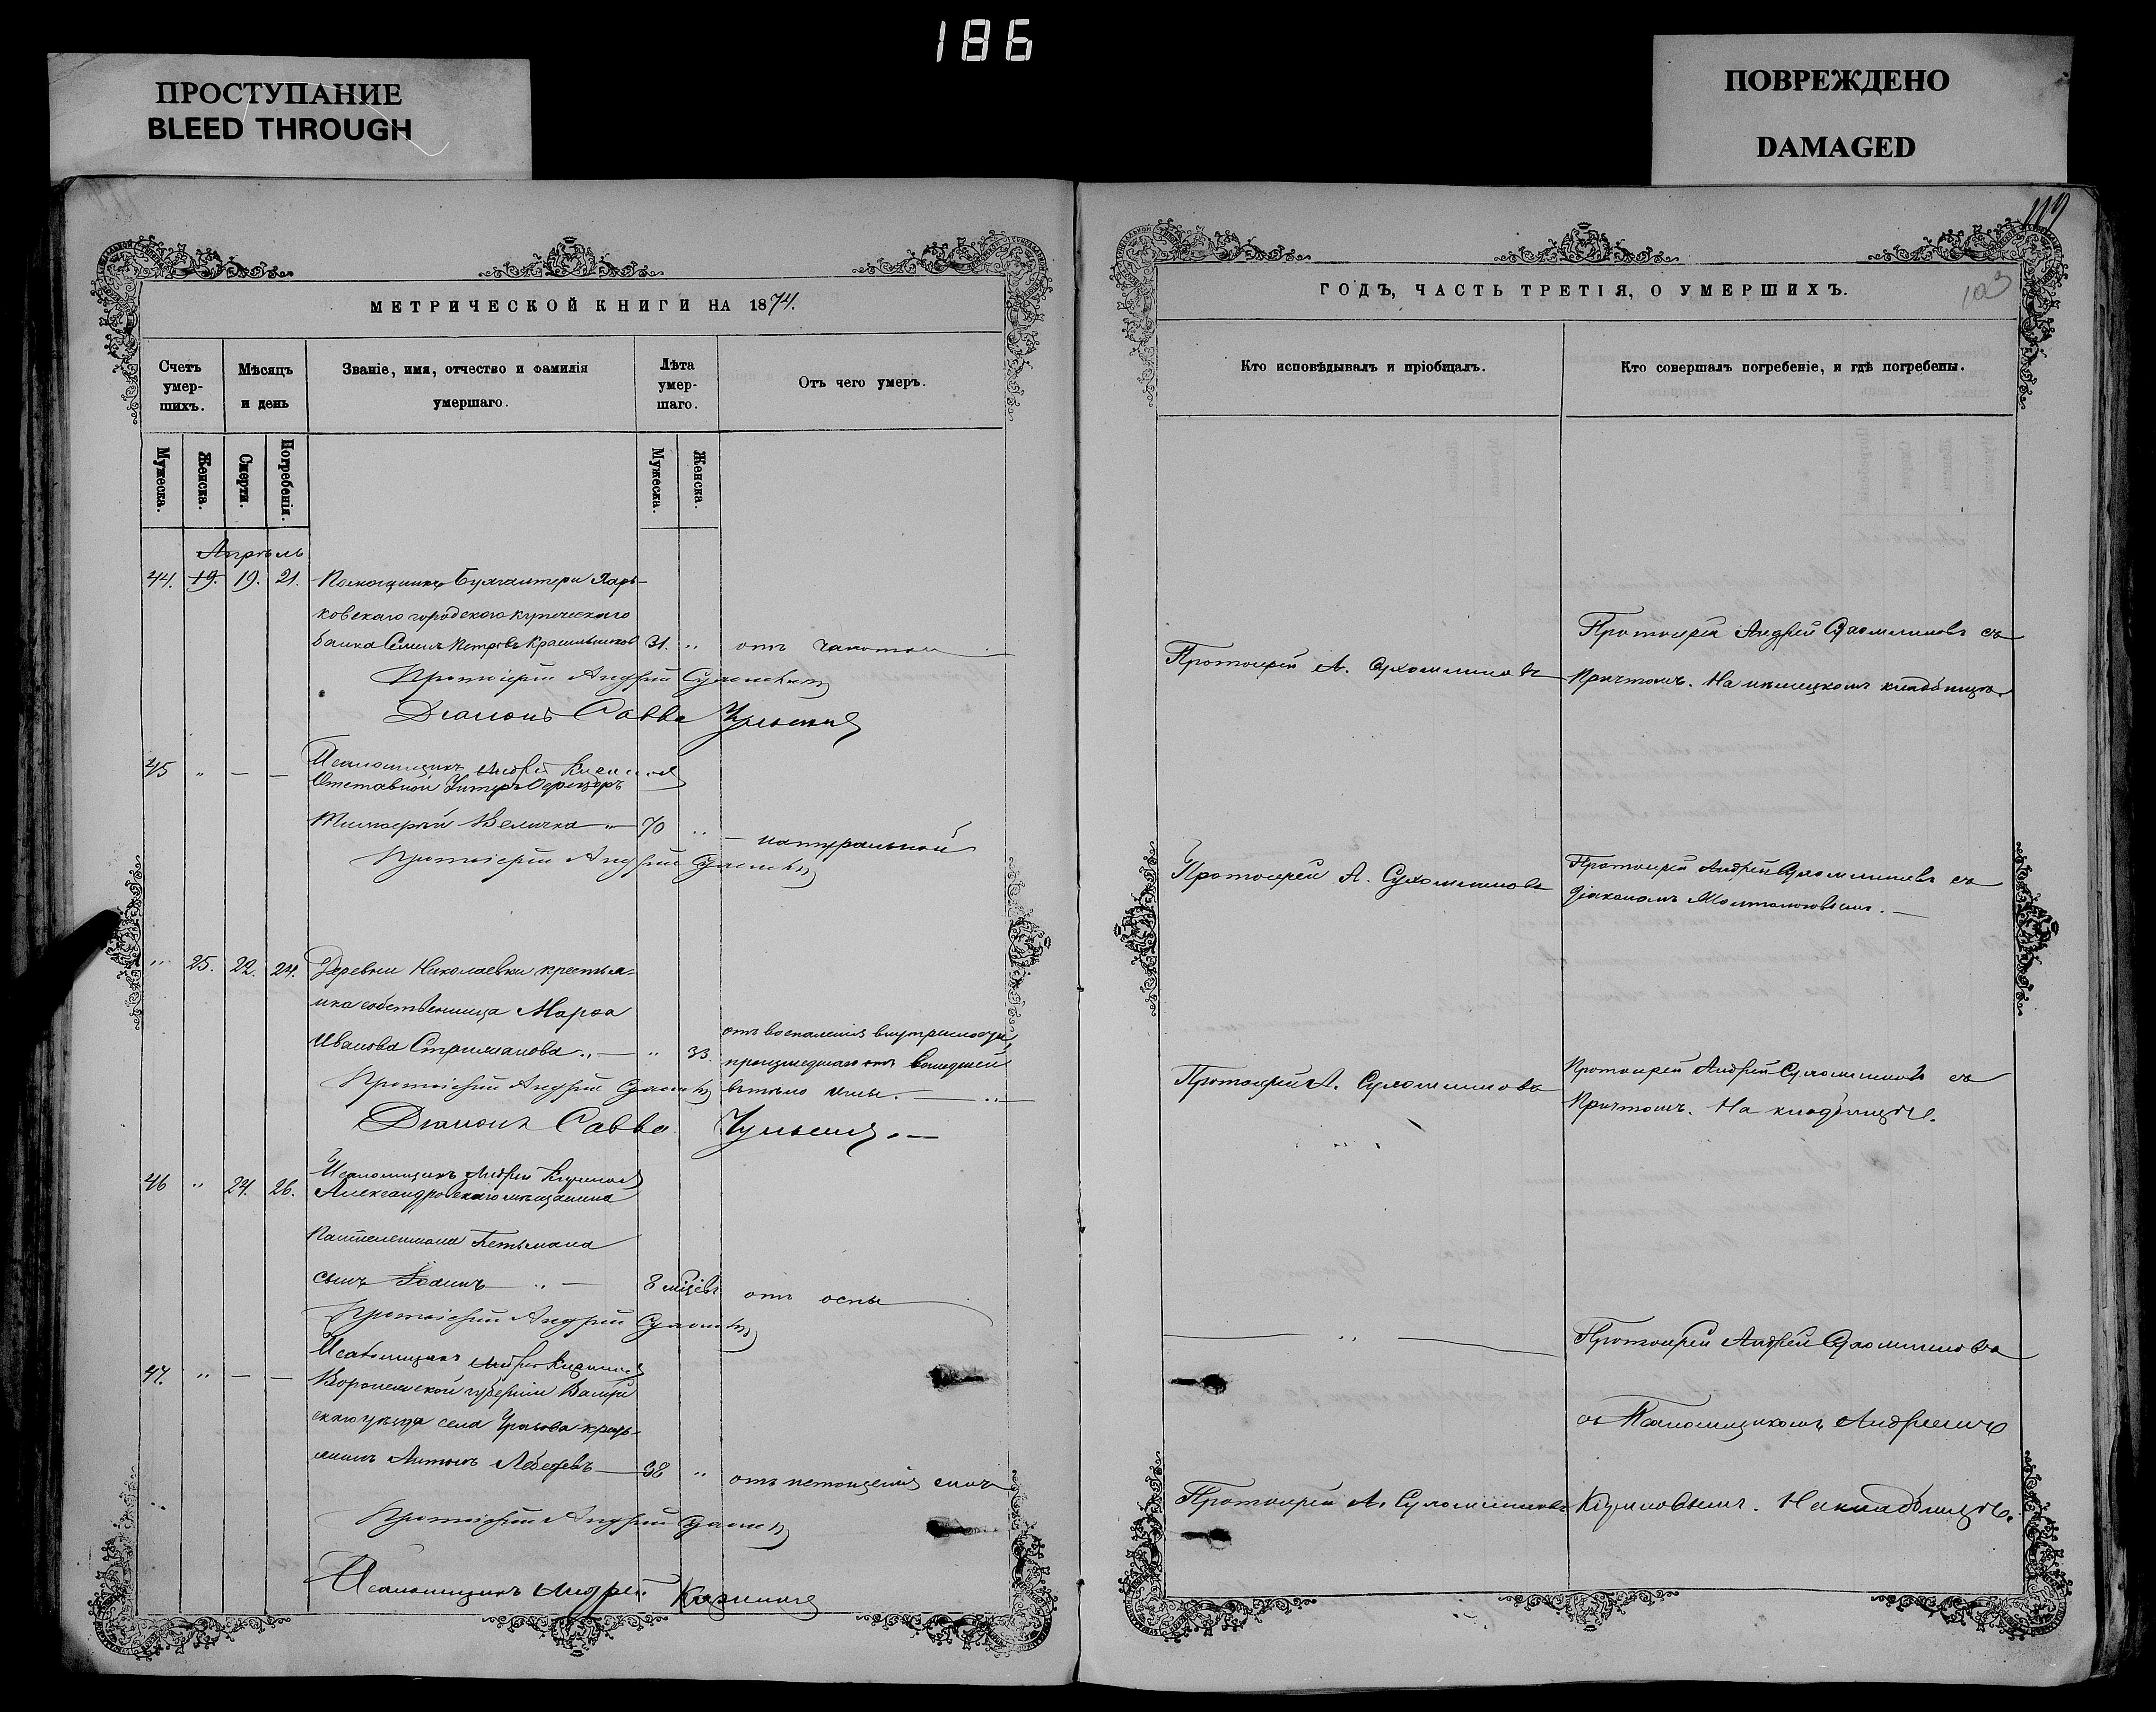 186
ПРОСТУПАНИЕ
BLEED THROUGH
ПОВРЕЖДЕНО
DAMAGED
МЕТРИЧЕСКОЙ КНИГИ НА 1874.
Счетъ умер-шихъ.
Мѣсяцъ и день
Званіе, имя, отчество и фамилія умершаго.
Лѣта умер-шаго.
Отъ чего умеръ.
Мужеска.
Женска.
Смерти.
Погребенія.
Мужеска.
Женска.
Апрѣль
44. 19. 19. 21. Помощникъ Бухгалтера Харь-
ковскаго городскаго купеческаго
банка Семенъ Петровъ Красильниковъ 31. " отъ чахотки
Протоіерей Андрей Сухомлиновъ
Діаконъ Савва
Псаломщикъ Андрей
45 " — — Отставной Унтеръ Офицеръ
Тимофей Величка 70 " — натуральной
Протоіерей Андрей Сухомлиновъ
" 25. 22. 24. Деревни Николаевки крестья-
нка собственница Марфа
Иванова " — " 33. отъ воспаленія
происшедшаго отъ вошедшей
Протоіерей Андрей Сухомлиновъ въ тѣло иглы.
Діаконъ Савва
Псаломщикъ Андрей
46 " 24. 26. Александровскаго мѣщанина
Пантелеимона Гетьмана
сынъ Іоаннъ " — 8 мѣсяцевъ отъ оспы
Протоіерей Андрей Сухомлиновъ
Псаломщикъ Андрей
47. " — — Воронежской губерніи
скаго уѣзда села Уразова кресть-
янинъ Антонъ Лебедевъ — 38 " отъ истощенія силъ
Протоіерей Андрей Сухомлиновъ
Псаломщикъ Андрей
119
103
ГОДЪ, ЧАСТЬ ТРЕТІЯ, О УМЕРШИХЪ.
Кто исповѣдывалъ и пріобщалъ.
Кто совершалъ погребеніе, и гдѣ погребены.
Протоіерей Андрей Сухомлиновъ съ
Протоіерей А. Сухомлиновъ
Причтомъ. На нѣмецкомъ кладбищѣ.
Протоіерей А. Сухомлиновъ
Протоіерей Андрей Сухомлиновъ съ
діакономъ
Протоіерей А. Сухомлиновъ
Протоіерей Андрей Сухомлиновъ съ
Причтомъ. На кладбищѣ.
— " —
Протоіерей Андрей Сухомлиновъ
съ Псаломщикомъ Андреемъ
Протоіерей А. Сухомлиновъ
На кладбищѣ.